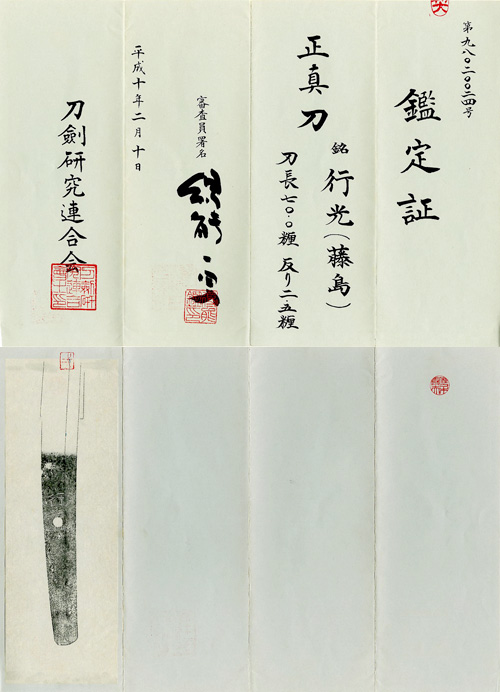 第九八〇二〇〇二四号
鑑定証
正真
刀 銘 行光(藤島)
刀長七〇.〇糎 反り二.五糎
審査員署名
平成十年二月十日
刀劍研究連合会
行